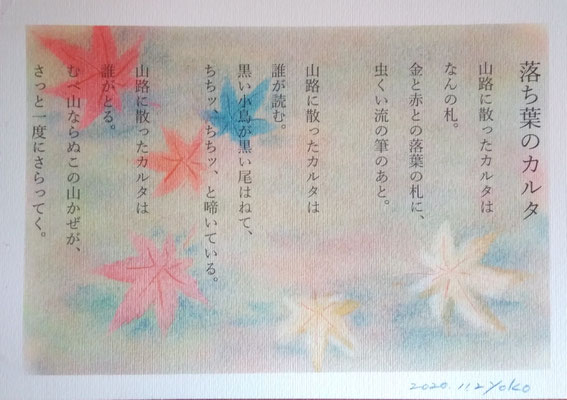 落ち葉のカルタ
山路に散ったカルタは
なんの札。
金と赤との落葉の札に、
虫くい流の筆のあと。
山路に散ったカルタは
誰が読む。
黒い小鳥が黒い尾はねて、
ちちッ、ちちッ、と啼いている。
山路に散ったカルタは
誰がとる。
むべ山ならぬこの山かぜが、
さっと一度にさらってく。
2020.11.2 Yoko